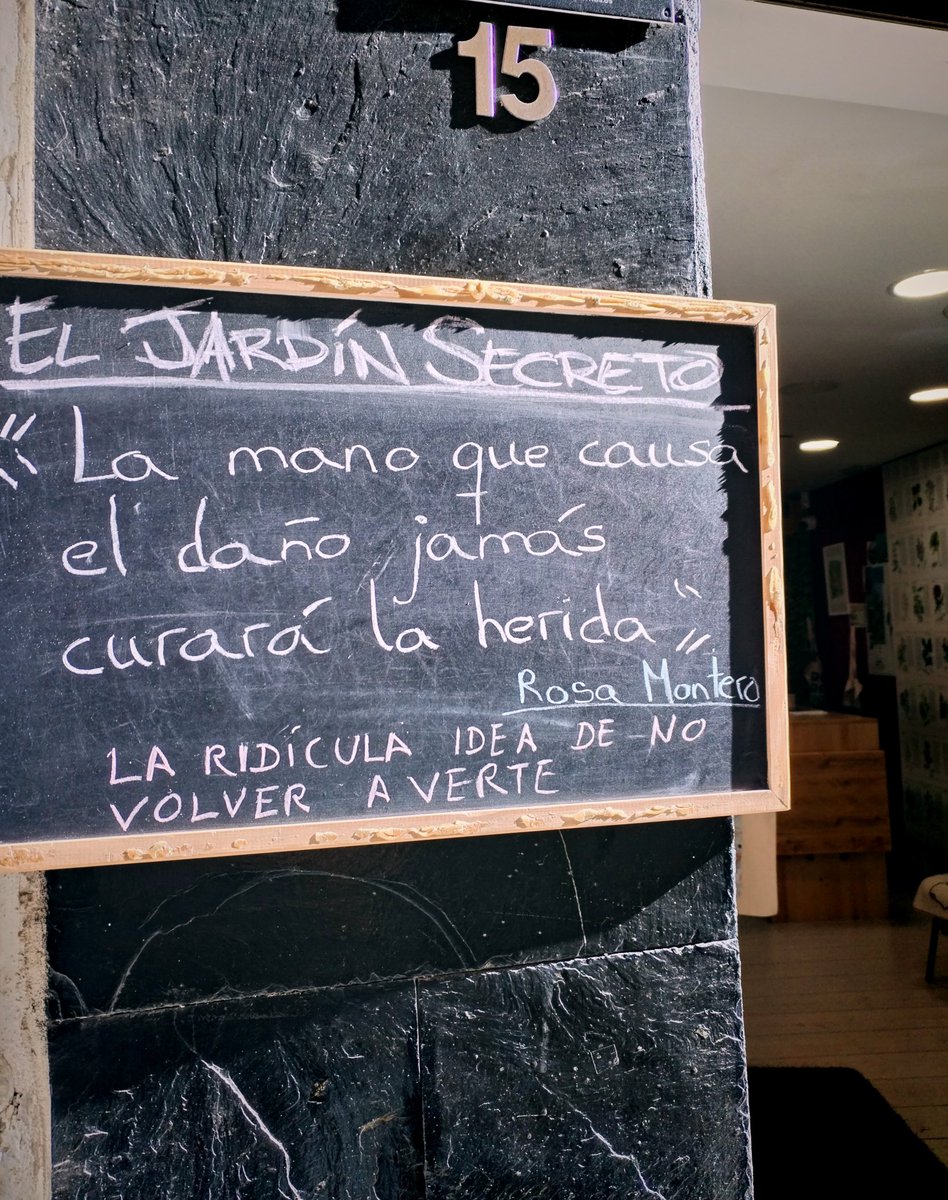 15
EL JARDÍN SECRETO
“La mano que causa
el daño jamás
curará la herida”
Rosa Montero
LA RIDÍCULA IDEA DE NO
VOLVER A VERTE